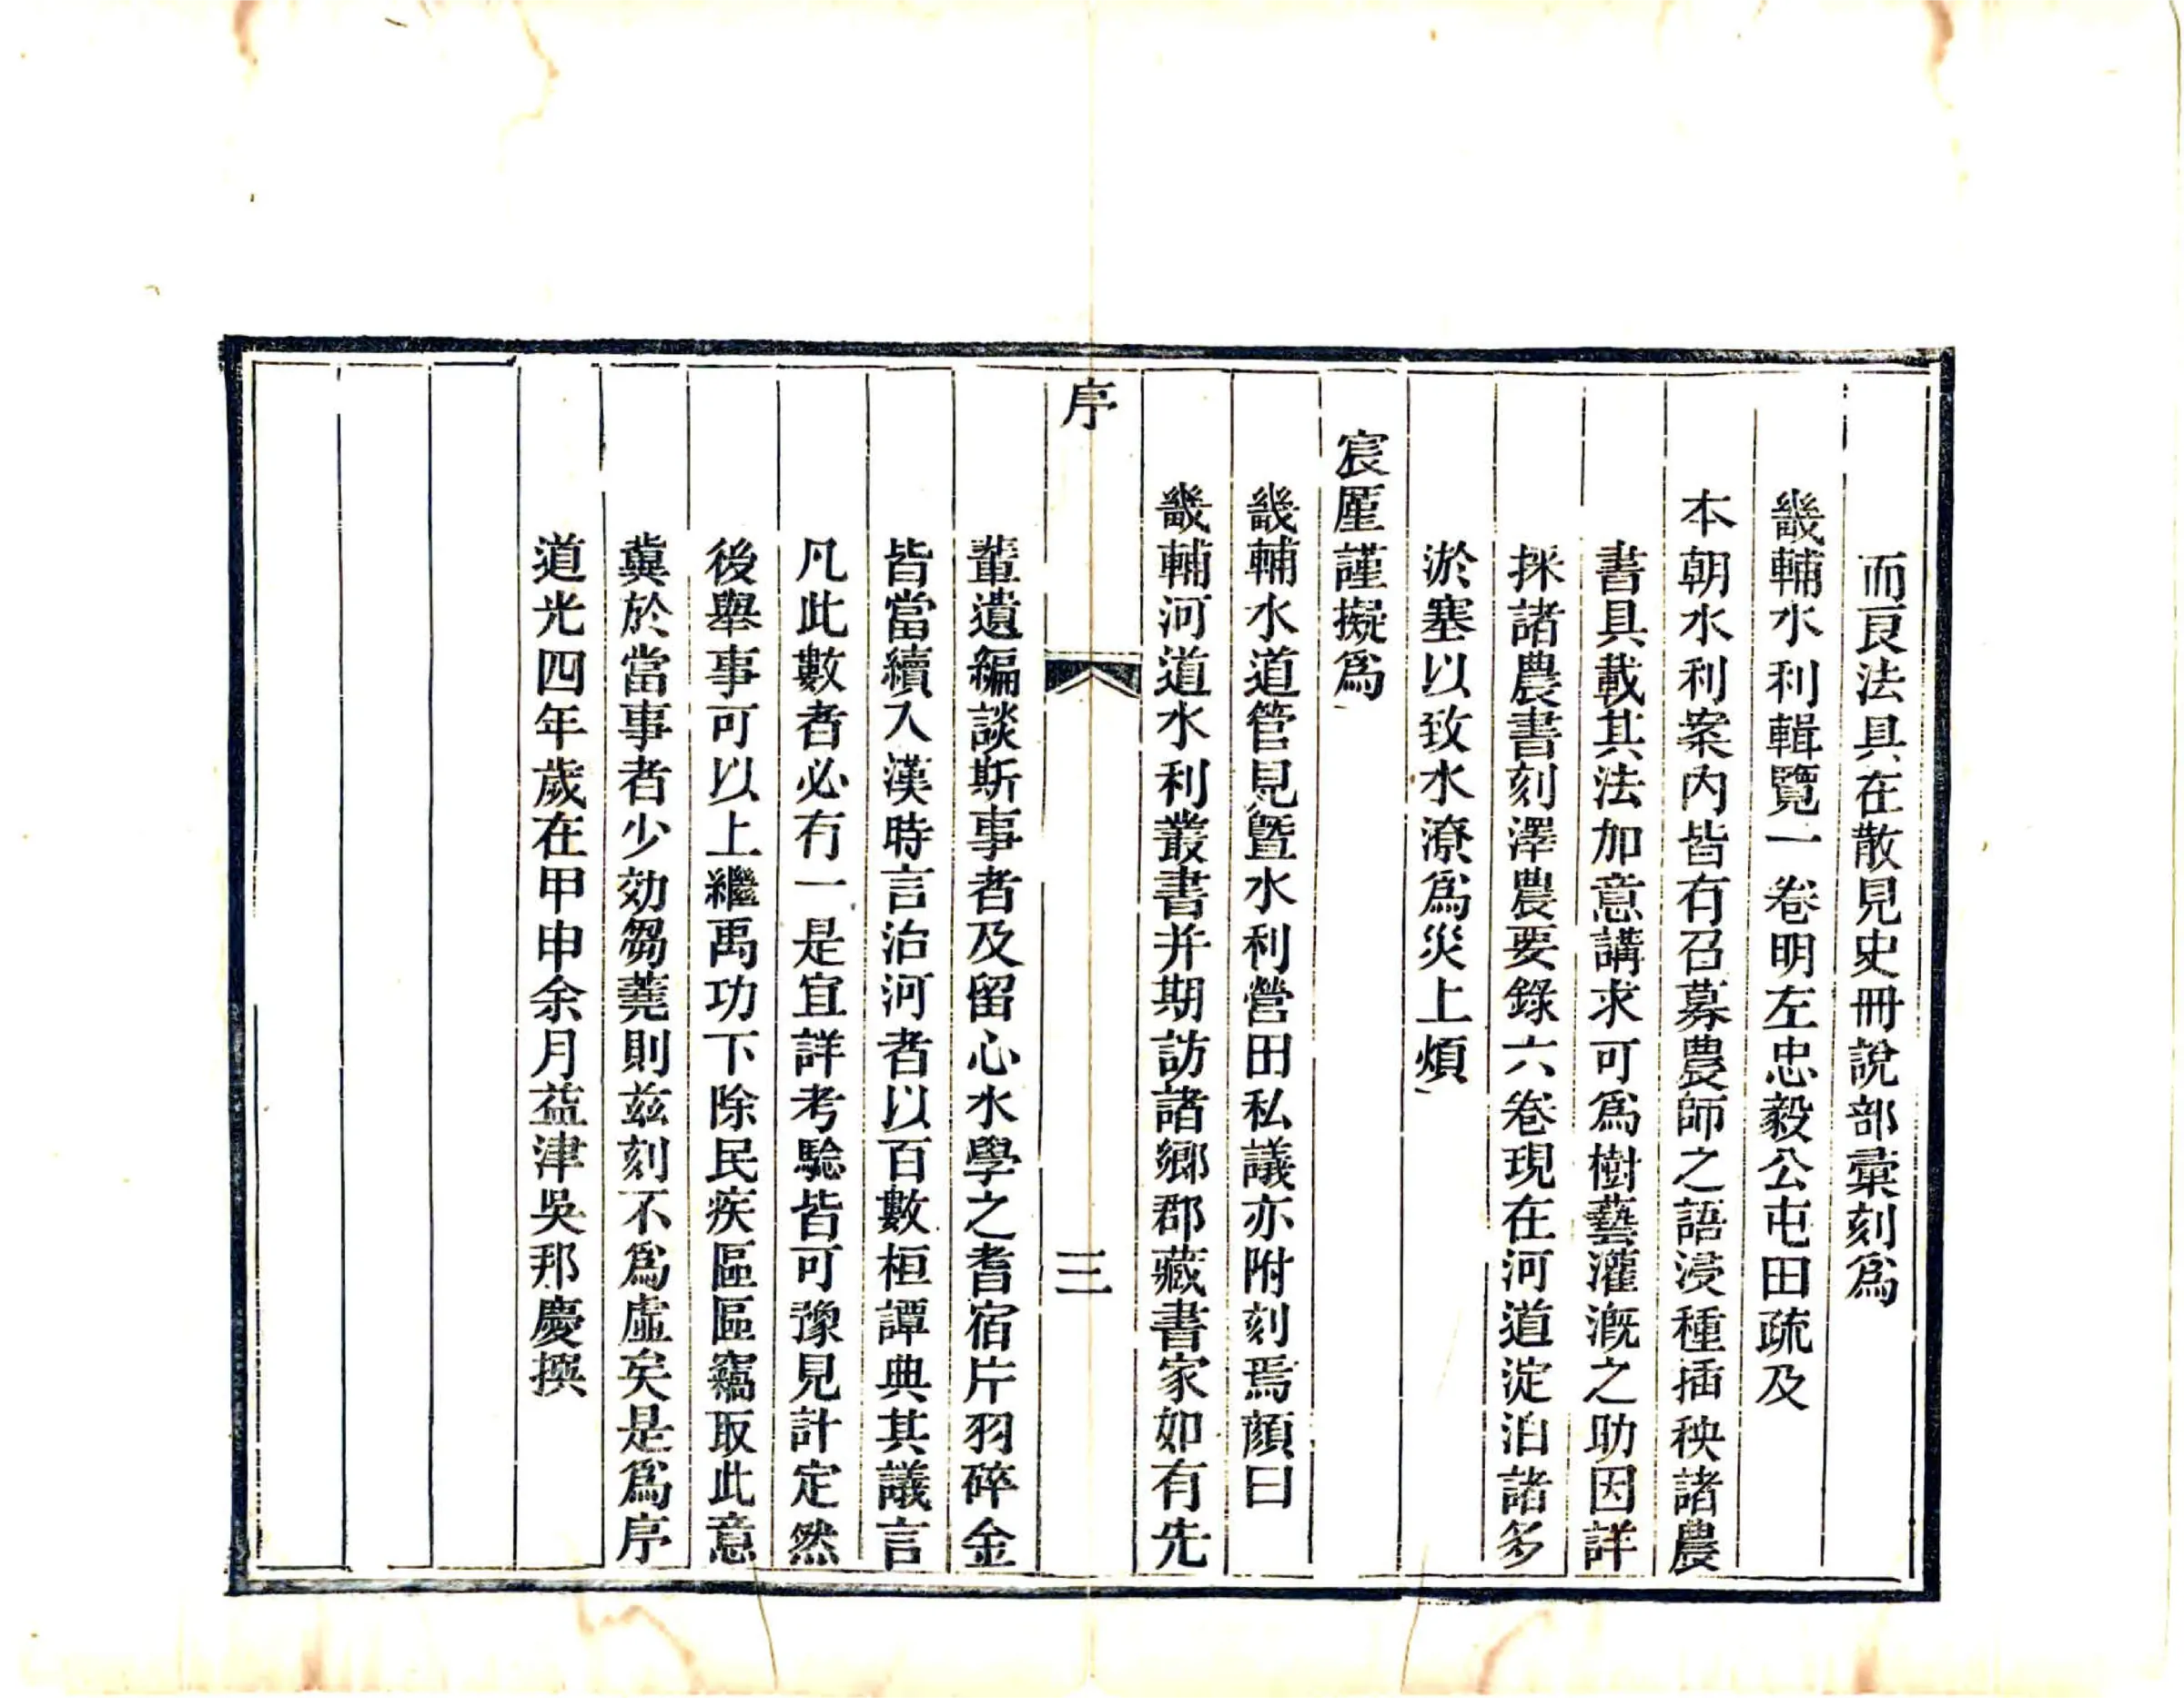 而良法具在散見史冊說部彚刻爲
畿輔水利輯覽一卷明左忠毅公屯田疏及
本朝水利案內皆有召募農師之語浸種插秧諸農
書具載其法加意講求可爲樹藝灌漑之助因詳
採諸農書刻澤農要錄六卷現在河道淀泊諸多
淤塞以致水潦爲災上煩
宸厪謹擬爲
畿輔水道管見曁水利營田私議亦附刻焉顏曰
畿輔河道水利叢書并期訪諸鄉郡藏書家如有先
序
三
輩遺編談斯事者及留心水學之耆宿片羽碎金
皆當續入漢時言治河者以百數桓譚典其議言
凡此數者必有一是宜詳考驗皆可豫見計定然
後舉事可以上繼禹功下除民疾區區竊取此意
冀於當事者少効芻蕘則茲刻不爲虛矣是爲序
道光四年歲在甲申余月益津吳邦慶撰